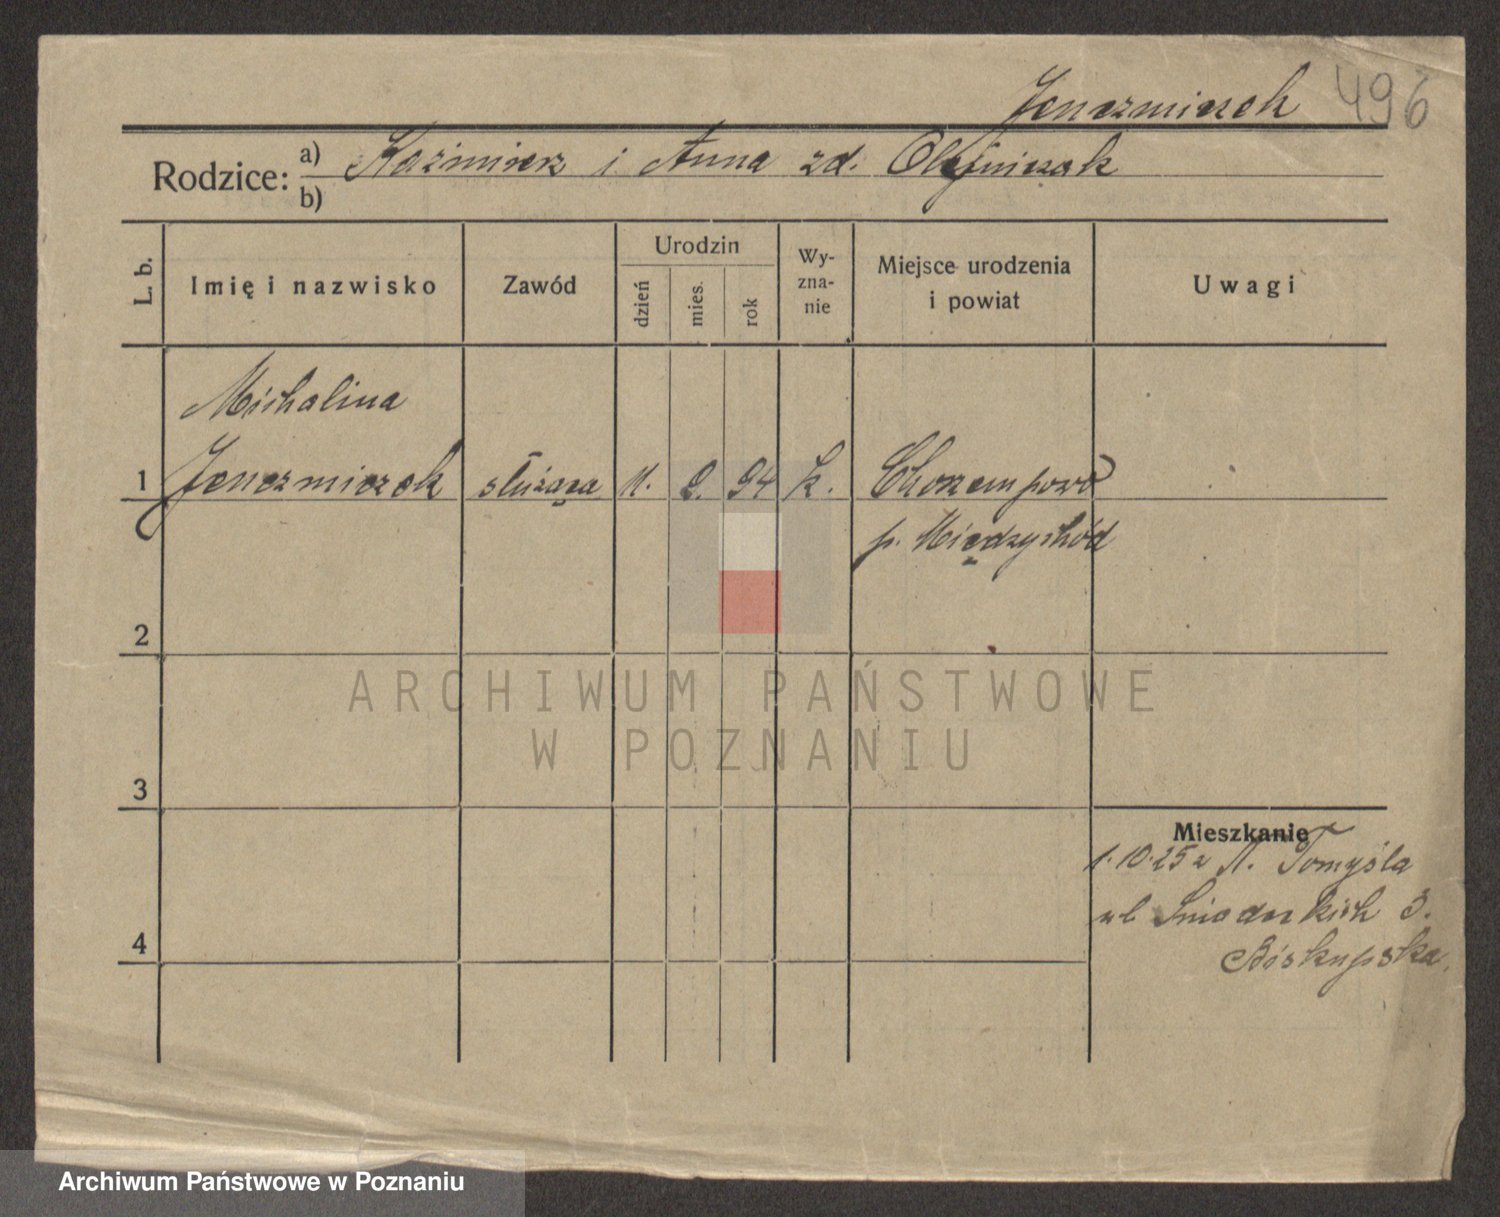 Jenczmiczek 496
Rodzice: a) Kaźmierz i Anna zd. Olejniczak
b)
L. b. Imię i nazwisko Zawód Urodzin dzień mies. rok Wyznanie Miejsce urodzenia i powiat Uwagi
Michalina
1 Jenczmiczek służąca 11. 9. 94 k. Chorzempowo
p. Międzychód
2
3
Mieszkanie
1.10.25 z N. Tomyśla
ul Śniadeckich 3.
Biskupska
4
ARCHIWUM PAŃSTWOWE
W POZNANIU
Archiwum Państwowe w Poznaniu